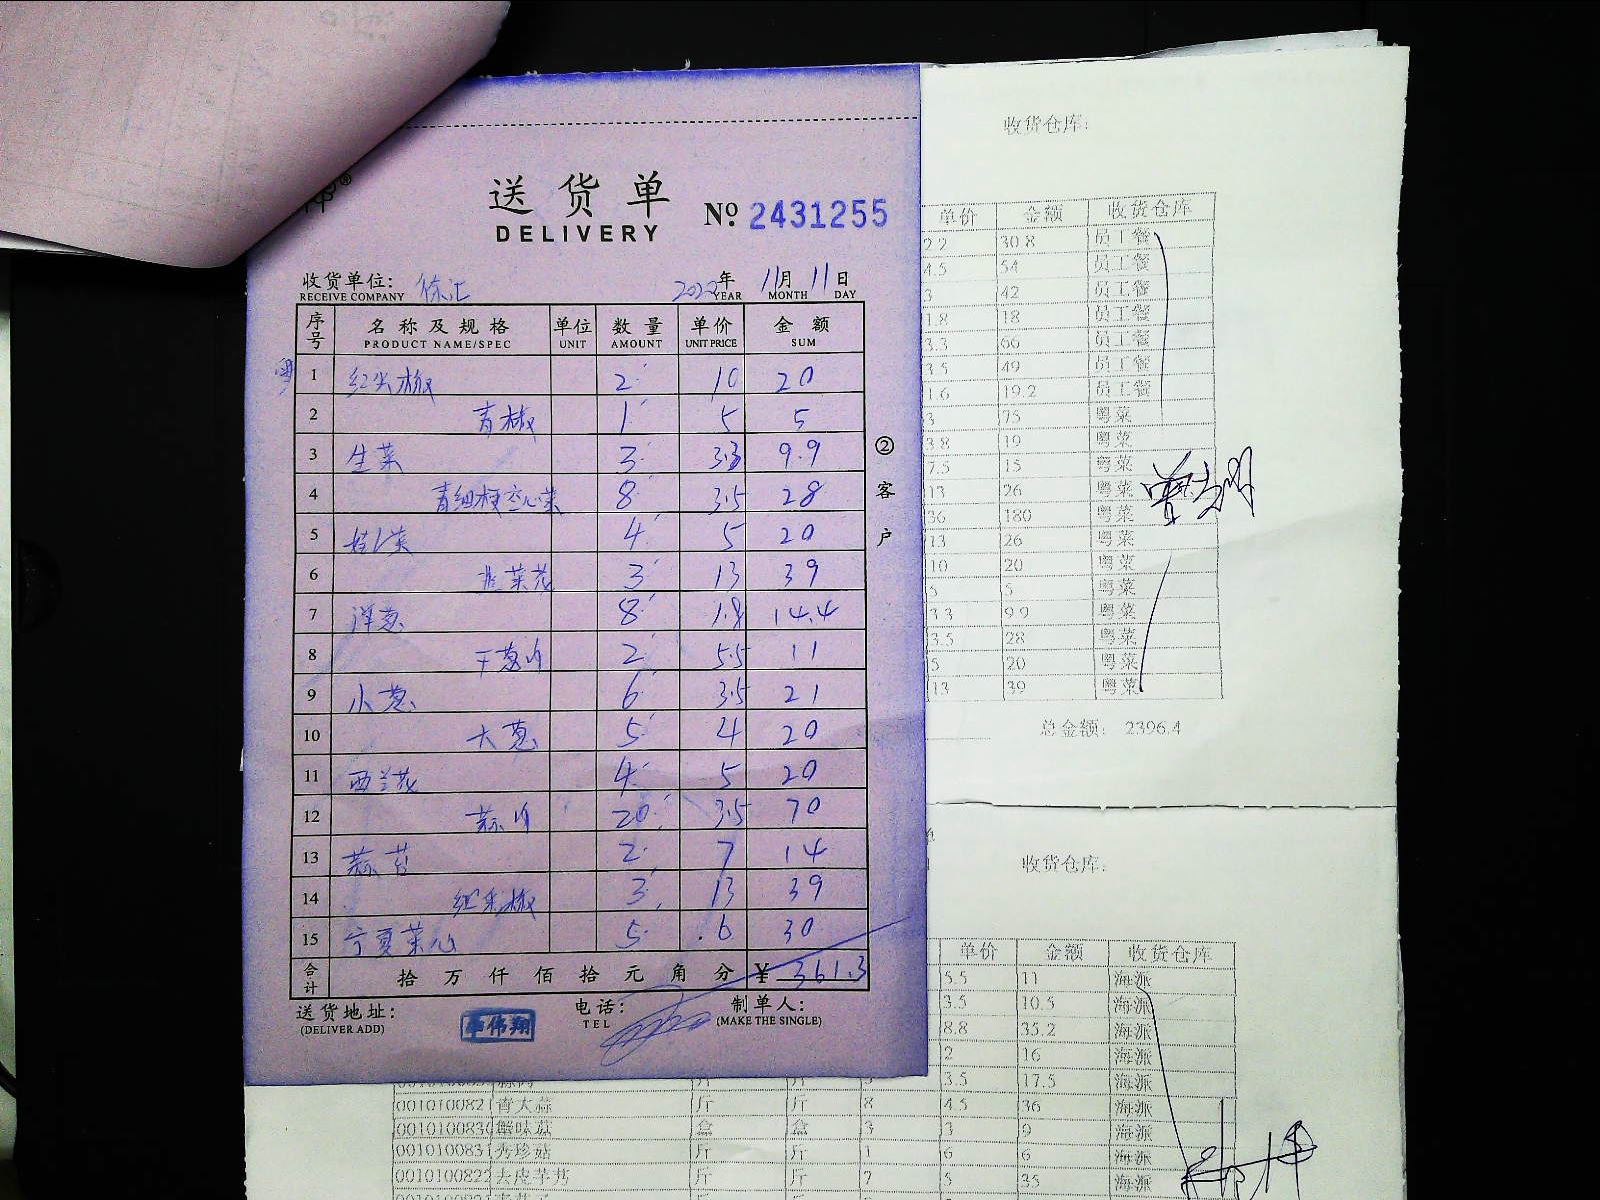 送货单
DELIVERY
No. 2431255
收货单位: 徐汇 2022年 11月 11日
RECEIVE COMPANY YEAR MONTH DAY
序号 名称及规格 单位 数量 单价 金额
PRODUCT NAME/SPEC UNIT AMOUNT UNIT PRICE SUM
粤 1 红尖椒 2 10 20
2 青椒 1 5 5
3 生菜 3 3.3 9.9
4 青细梗空心菜 8 3.5 28
5 4 5 20
6 韭菜花 3 13 39
7 洋葱 8 1.8 14.4
8 干葱肉 2 5.5 11
9 小葱 6 3.5 21
10 大葱 5 4 20
11 西兰花 4 5 20
12 蒜肉 20 3.5 70
13 蒜苔 2 7 14
14 红采椒 3 13 39
15 宁夏菜心 5 6 30
合计 拾 万 仟 佰 拾 元 角 分 ¥ 361.3
送货地址: 电话: 制单人:
(DELIVER ADD) TEL (MAKE THE SINGLE)
②客户
收货仓库:
单价 金额 收货仓库
2.2 30.8 员工餐
4.5 54 员工餐
3 42 员工餐
1.8 18 员工餐
3.3 66 员工餐
3.5 49 员工餐
1.6 19.2 员工餐
3 75 粤菜
3.8 19 粤菜
7.5 15 粤菜
13 26 粤菜
36 180 粤菜
13 26 粤菜
10 20 粤菜
5 5 粤菜
3.3 9.9 粤菜
3.5 28 粤菜
5 20 粤菜
13 39 粤菜
总金额: 2396.4
收货仓库:
单价 金额 收货仓库
5.5 11 海派
3.5 10.5 海派
8.8 35.2 海派
2 16 海派
3.5 17.5 海派
001010082 青大蒜 斤 斤 8 4.5 36 海派
001010083 蟹味菇 盒 盒 3 3 9 海派
001010083 秀珍菇 斤 斤 1 6 6 海派
001010082 去皮芋艿 斤 斤 7 5 35 海派